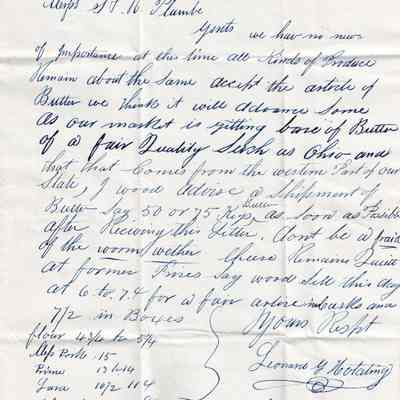 Messrs S. & H. Plumbe
Gents we have no new
of Importance at this time all Kinds of Produce
Remain about the same accept the article of
Butter we think it will advance some
As our market is gitting bare of Butter
of a fair Quality Such as Ohio and
that that Comes from the western Part of our
State, I wood advise a Shipment of
Butter Say 50 or 75 Kegs Butter as soon as Fusible
after Receiving this Letter. dont be afraid
of the worm wether Cheese Remains Quiet
at former Prices Say wood Sell this day
at 6 to 7.4 for a fair article in casks and
7/2 in Boxes
Yours Respt
flour 4 3/4 to 5/4
Mess Pork 15
Prime 13 to 14
Leonard G Hotaling
Lard 10/2 11 4